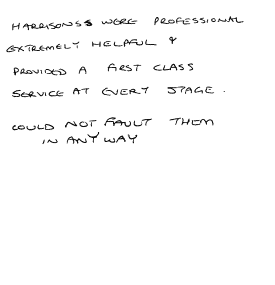 HARRISONS WERE PROFESSIONAL
EXTREMELY HELPFUL &
PROVIDED A FIRST CLASS
SERVICE AT EVERY STAGE.
COULD NOT FAULT THEM
IN ANY WAY